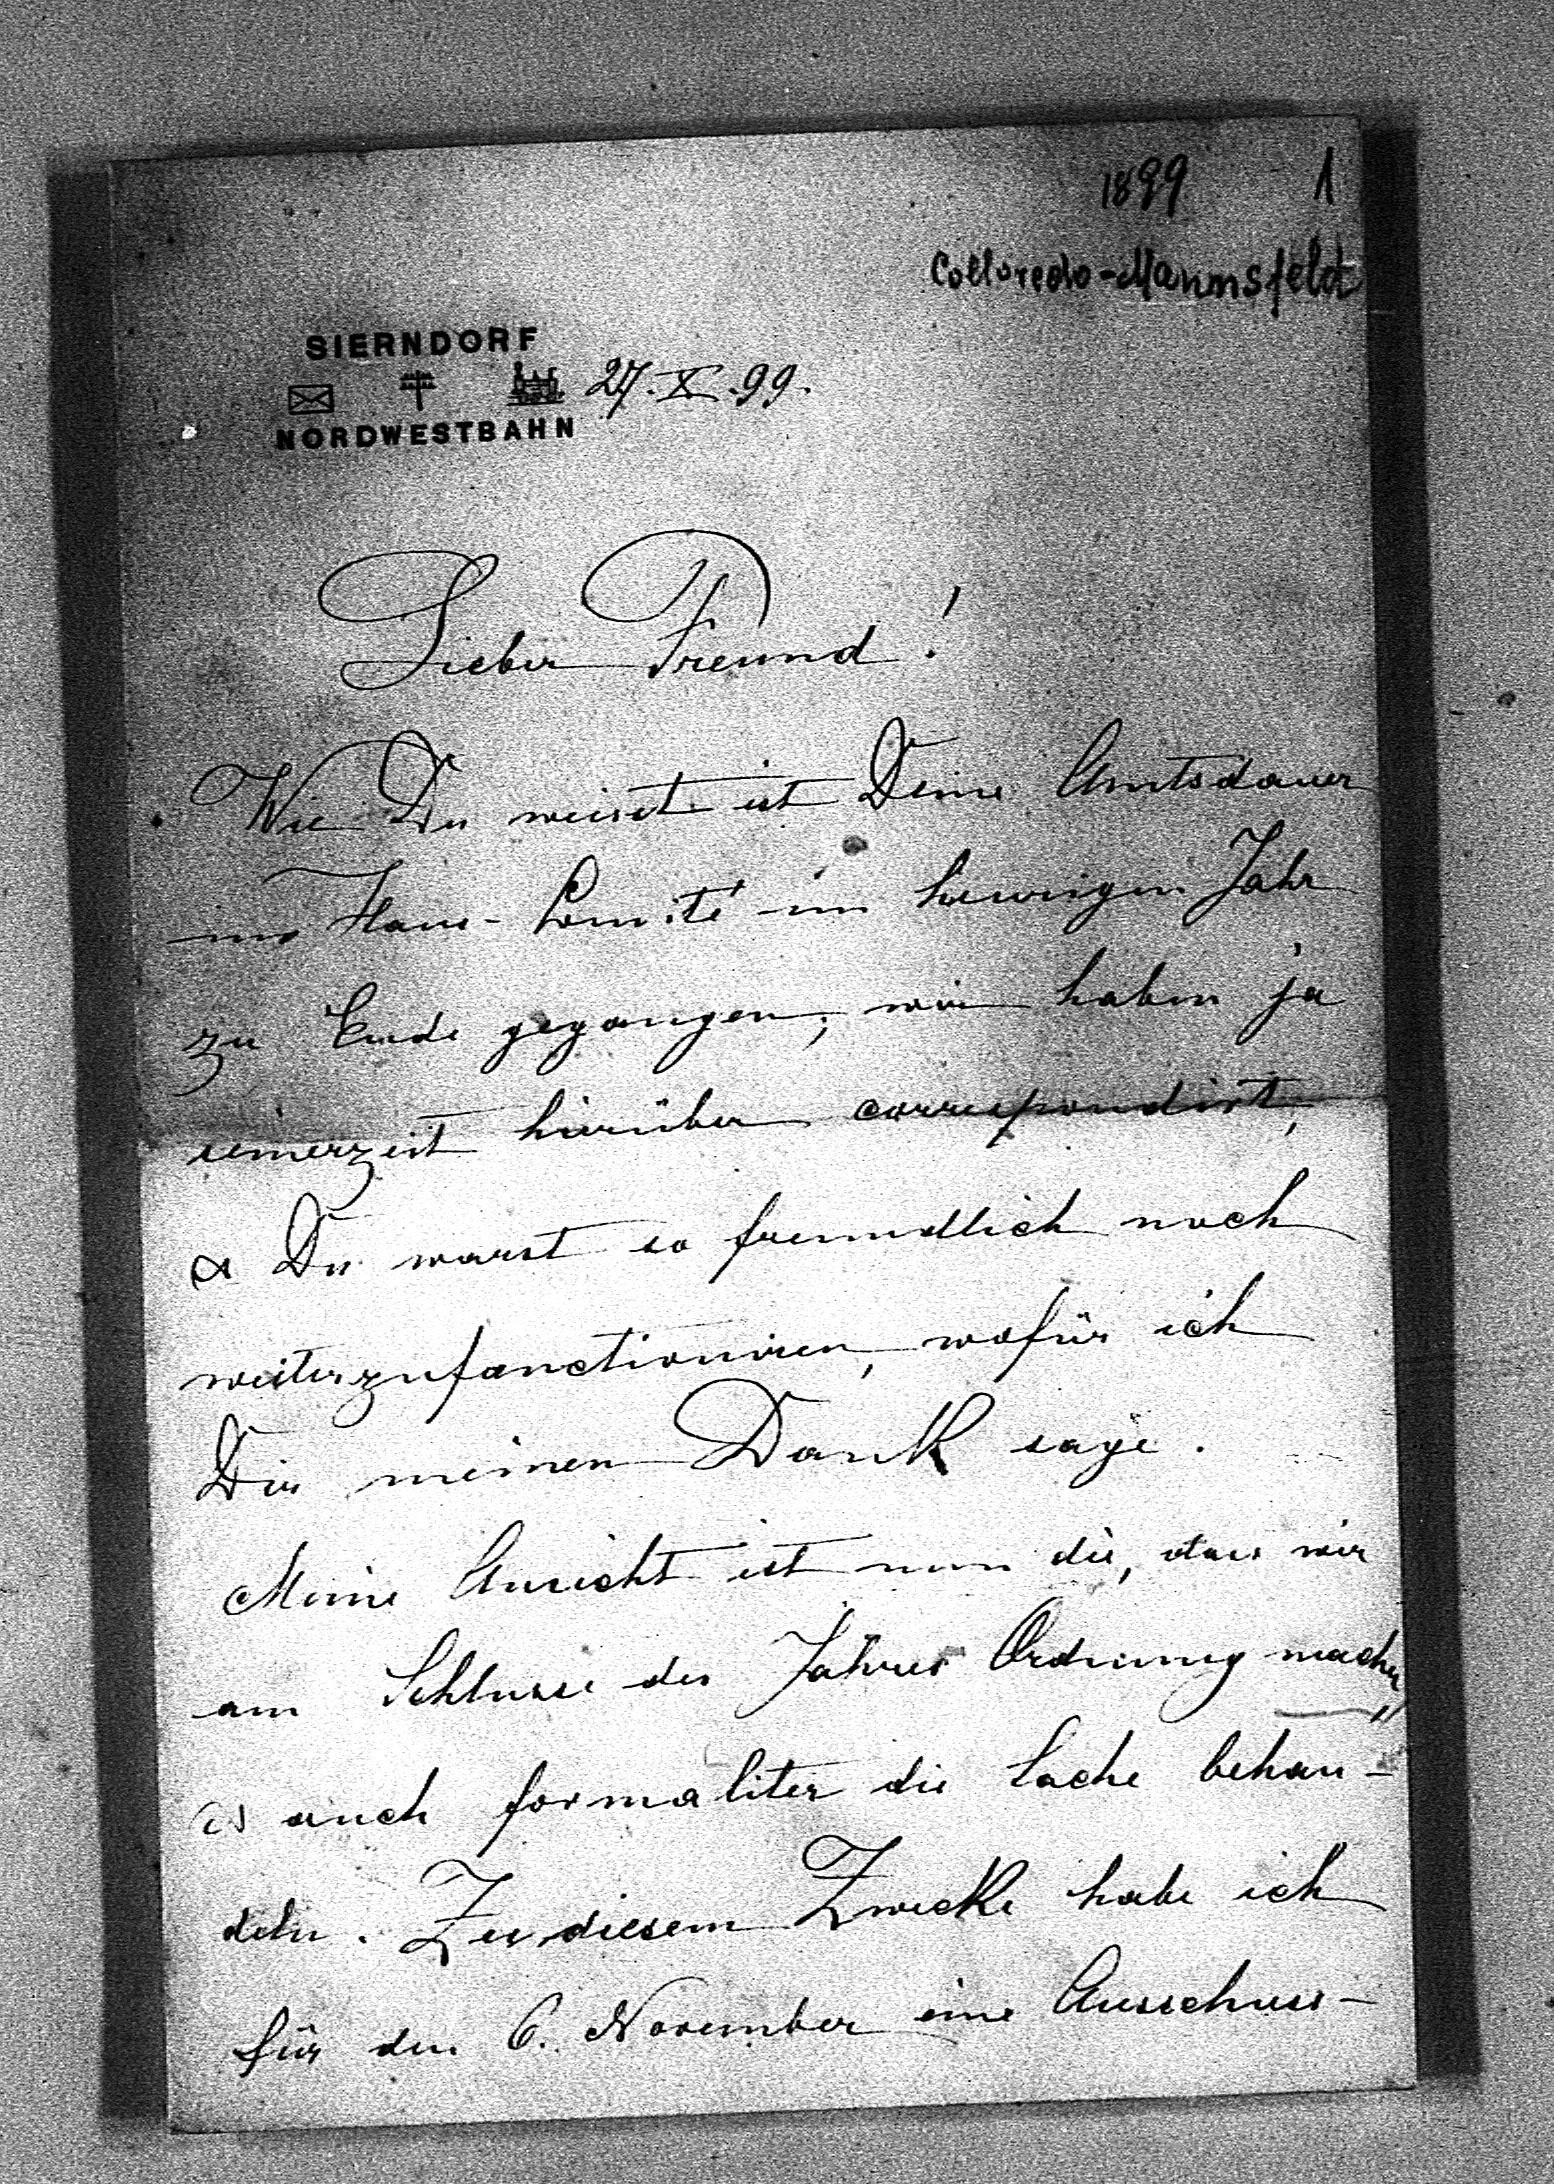 1899 1
Colloredo-Mannsfeld
SIERNDORF
27. X. 99.
NORDWESTBAHN
Lieber Freund!
Wie Du weisst ist Deine Amtsdauer
im Haus-Comité im heurigen Jahr
zu Ende gegangen; wir haben ja
seinerzeit hierüber correspondirt,
& Du warst so freundlich noch
weiterzufunctioniren, wofür ich
Dir meinen Dank sage.
Meine Ansicht ist nun die, dass wir
am Schlusse des Jahres Ordnung machen
& auch formaliter die Sache behan-
deln. Zu diesem Zwecke habe ich
für den 6. November eine Ausschuss-